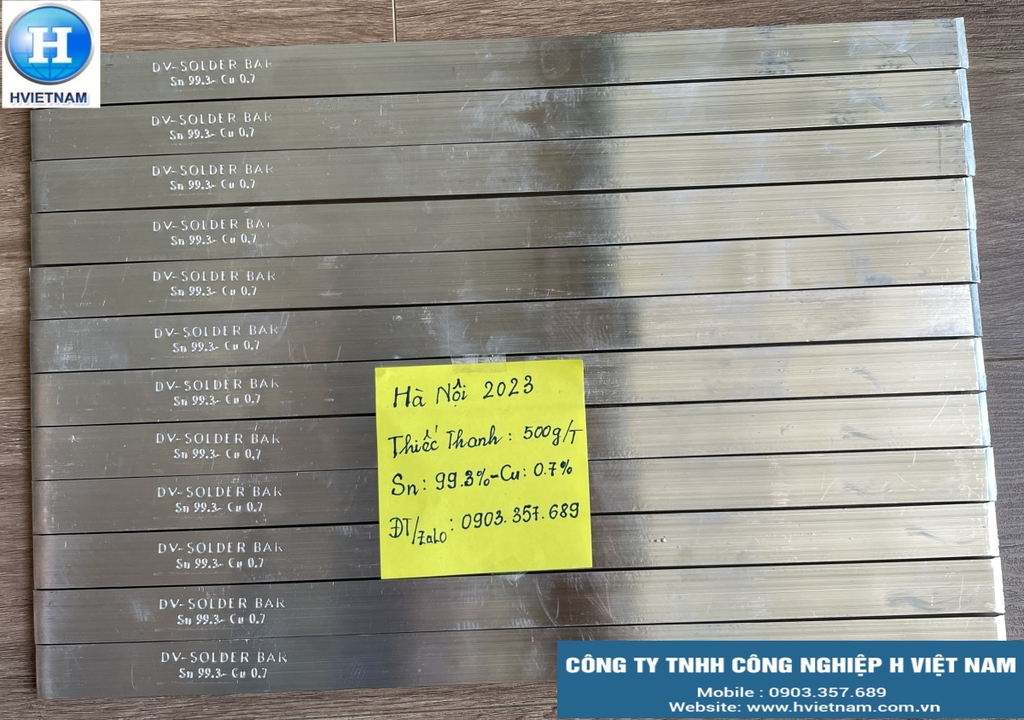 H
HVIETNAM
DV-SOLDER BAR
Sn 99.3- Cu 0.7
DV-SOLDER BAR
Sn 99.3- Cu 0.7
DV-SOLDER BAR
Sn 99.3- Cu 0.7
DV-SOLDER BAR
Sn 99.3- Cu 0.7
DV-SOLDER BAR
Sn 99.3- Cu 0.7
DV-SOLDER BAR
Sn 99.3- Cu 0.7
DV-SOLDER BAR
Sn 99.3- Cu 0.7
DV-SOLDER BAR
Sn 99.3- Cu 0.7
DV-SOLDER BAR
Sn 99.3- Cu 0.7
DV-SOLDER BAR
Sn 99.3- Cu 0.7
DV-SOLDER BAR
Sn 99.3- Cu 0.7
DV-SOLDER BAR
Sn 99.3- Cu 0.7
Hà Nội 2023
Thiếc Thanh : 500g/T
Sn: 99.3%-Cu: 0.7%
ĐT/Zalo : 0903.357.689
CÔNG TY TNHH CÔNG NGHIỆP H VIỆT NAM
Mobile : 0903.357.689
Website: www.hvietnam.com.vn